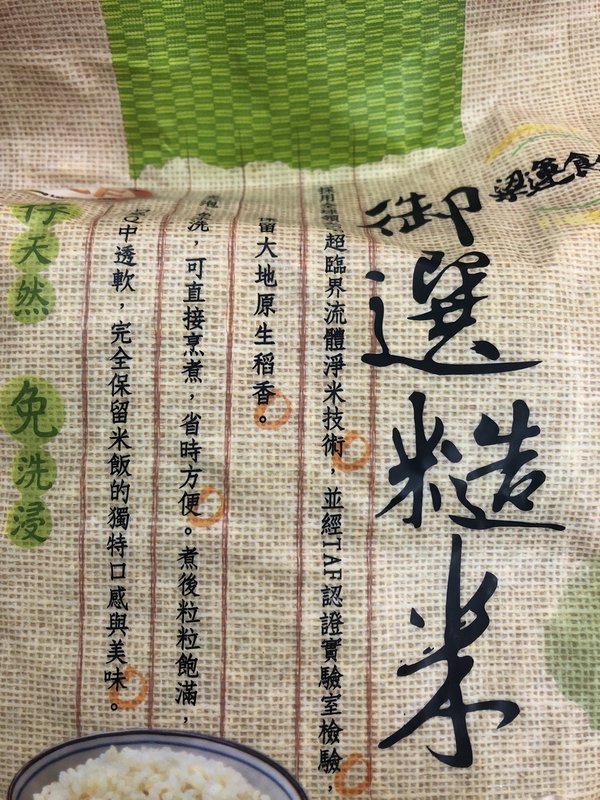 梁運食
御選糙米
採用全球領先超臨界流體淨米技術，並經TAF認證實驗室檢驗，
留大地原生稻香。
免洗，可直接烹煮，省時方便。煮後粒粒飽滿，
Q中透軟，完全保留米飯的獨特口感與美味。
天然
免洗浸